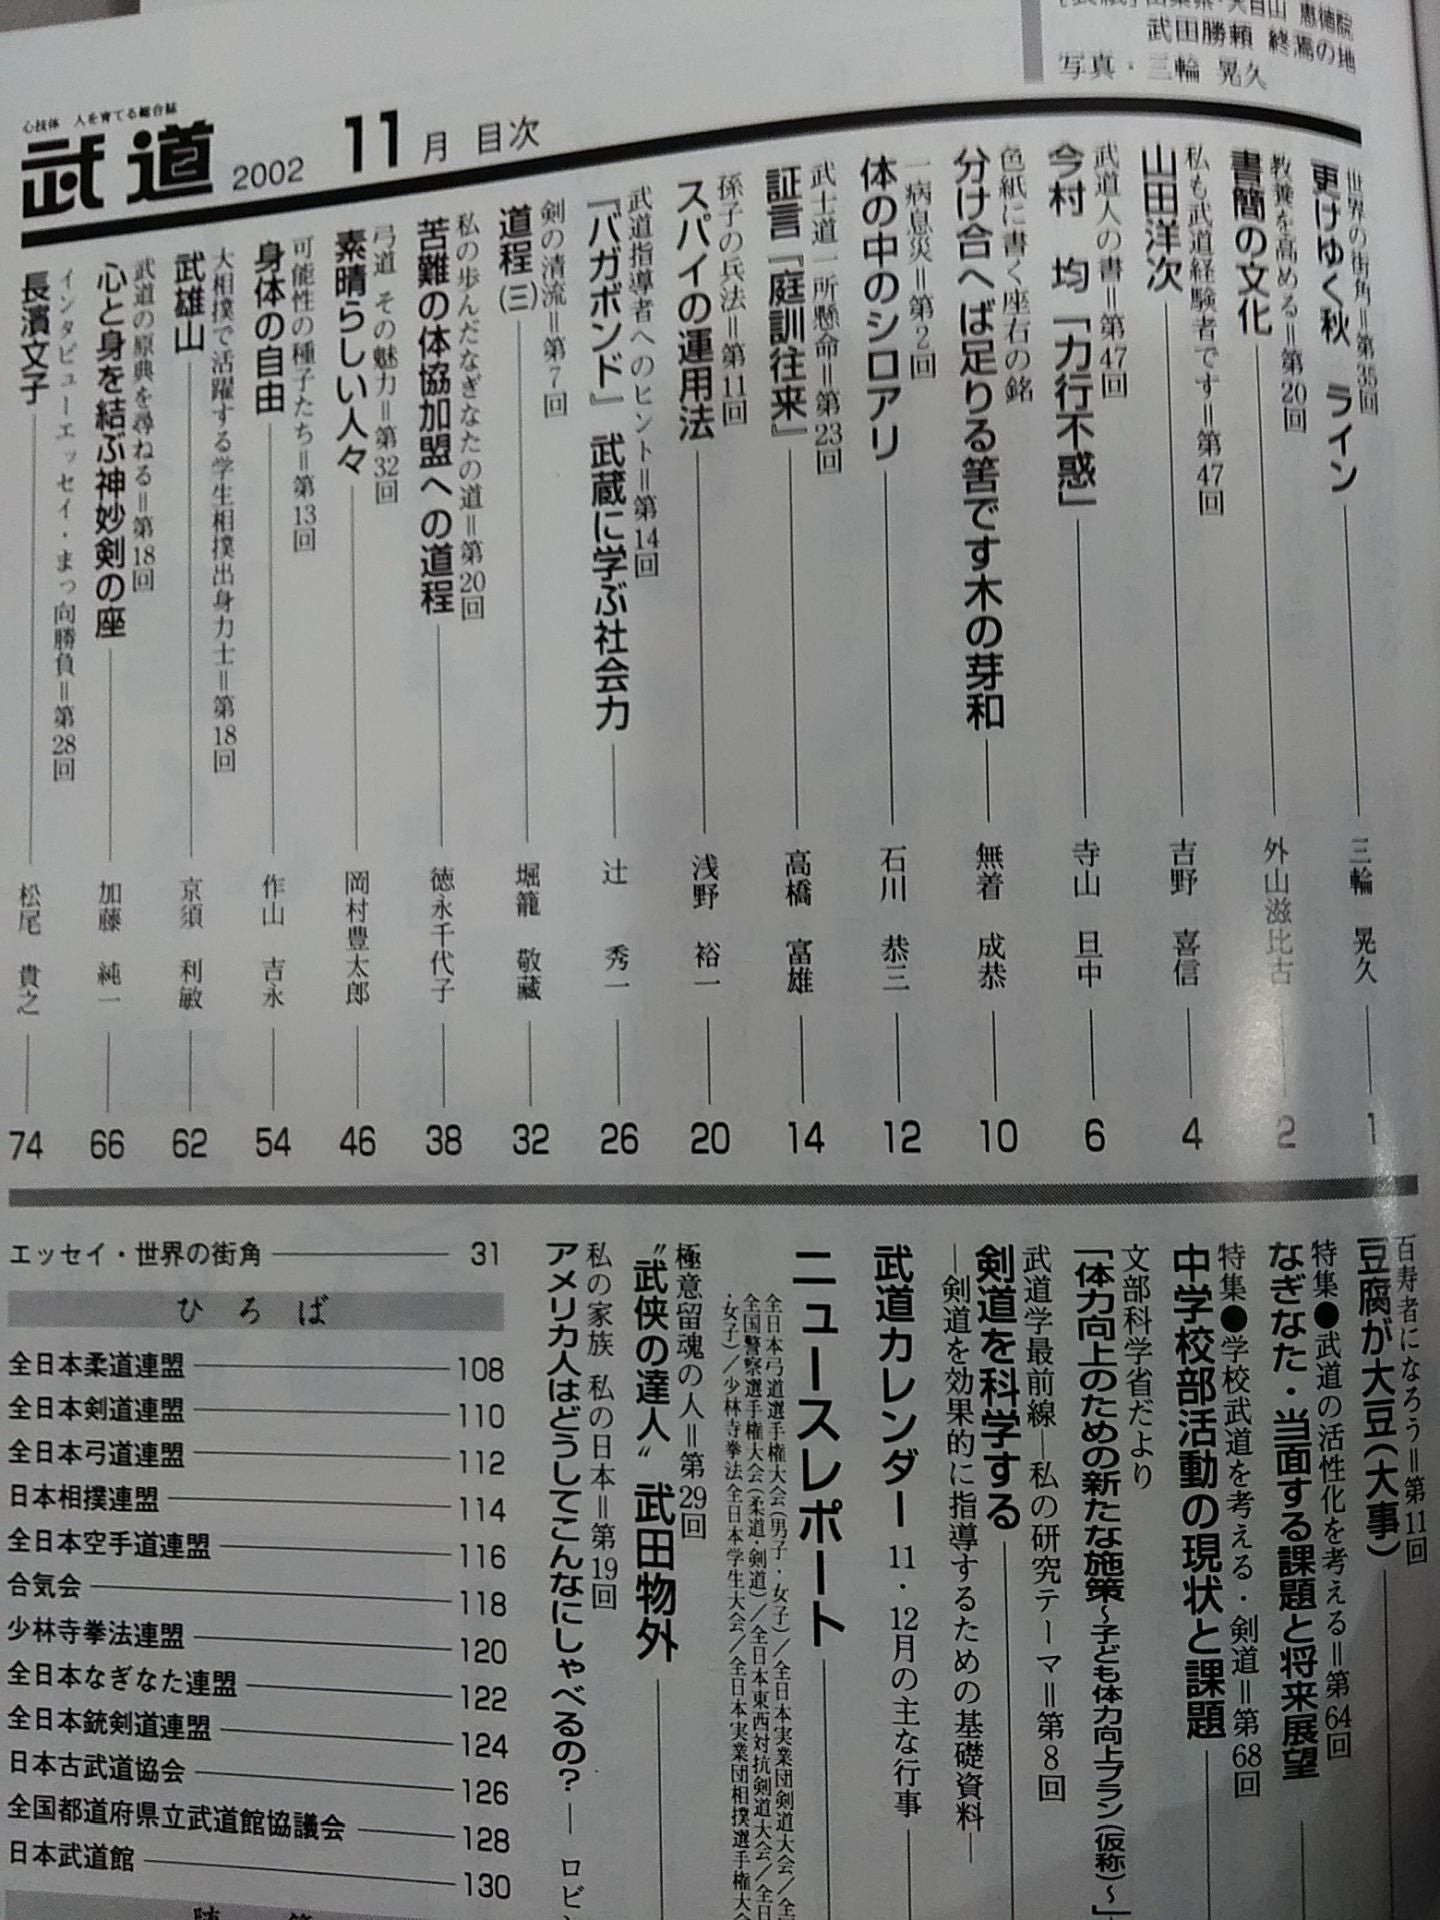 武田勝頼 終焉の地
写真・三輪 晃久
心技体 人を育てる総合誌
武道 2002 11月 目次
世界の街角＝第35回
更けゆく秋 ライン 三輪 晃久 1
教養を高める＝第20回
書簡の文化 外山滋比古 2
私も武道経験者です＝第47回
山田洋次 吉野 喜信 4
武道人の書＝第47回
今村 均「力行不惑」 寺山 旦中 6
色紙に書く座右の銘
分け合へば足りる筈です木の芽和 無着 成恭 10
一病息災＝第2回
体の中のシロアリ 石川 恭三 12
武士道一所懸命＝第23回
証言『庭訓往来』 高橋 富雄 14
孫子の兵法＝第11回
スパイの運用法 浅野 裕一 20
武道指導者へのヒント＝第14回
『バガボンド』武蔵に学ぶ社会力 辻 秀一 26
剣の清流＝第7回
道程(三) 堀籠 敬蔵 32
私の歩んだなぎなたの道＝第20回
苦難の体協加盟への道程 徳永千代子 38
弓道 その魅力＝第32回
素晴らしい人々 岡村豊太郎 46
可能性の種子たち＝第13回
身体の自由 作山 吉永 54
大相撲で活躍する学生相撲出身力士＝第18回
武雄山 京須 利敏 62
武道の原典を尋ねる＝第18回
心と身を結ぶ神妙剣の座 加藤 純一 66
インタビューエッセイ・まっ向勝負＝第28回
長濱文子 松尾 貴之 74
百寿者になろう＝第11回
豆腐が大豆(大事)
特集●武道の活性化を考える＝第64回
なぎなた・当面する課題と将来展望
特集●学校武道を考える・剣道＝第68回
中学校部活動の現状と課題
文部科学省だより
「体力向上のための新たな施策～子ども体力向上プラン(仮称)～」
武道学最前線―私の研究テーマ＝第8回
剣道を科学する
―剣道を効果的に指導するための基礎資料―
武道カレンダー 11・12月の主な行事
ニュースレポート
全日本弓道選手権大会(男子・女子)／全日本実業団剣道大会／
全国警察選手権大会(柔道・剣道)／全日本東西対抗剣道大会／全日
・女子)／少林寺拳法全日本学生大会／全日本実業団相撲選手権大会
極意留魂の人＝第29回
〝武侠の達人〟武田物外
私の家族 私の日本＝第19回
アメリカ人はどうしてこんなにしゃべるの？ ― ロビン
エッセイ・世界の街角 31
ひろば
全日本柔道連盟 108
全日本剣道連盟 110
全日本弓道連盟 112
日本相撲連盟 114
全日本空手道連盟 116
合気会 118
少林寺拳法連盟 120
全日本なぎなた連盟 122
全日本銃剣道連盟 124
日本古武道協会 126
全国都道府県立武道館協議会 128
日本武道館 130